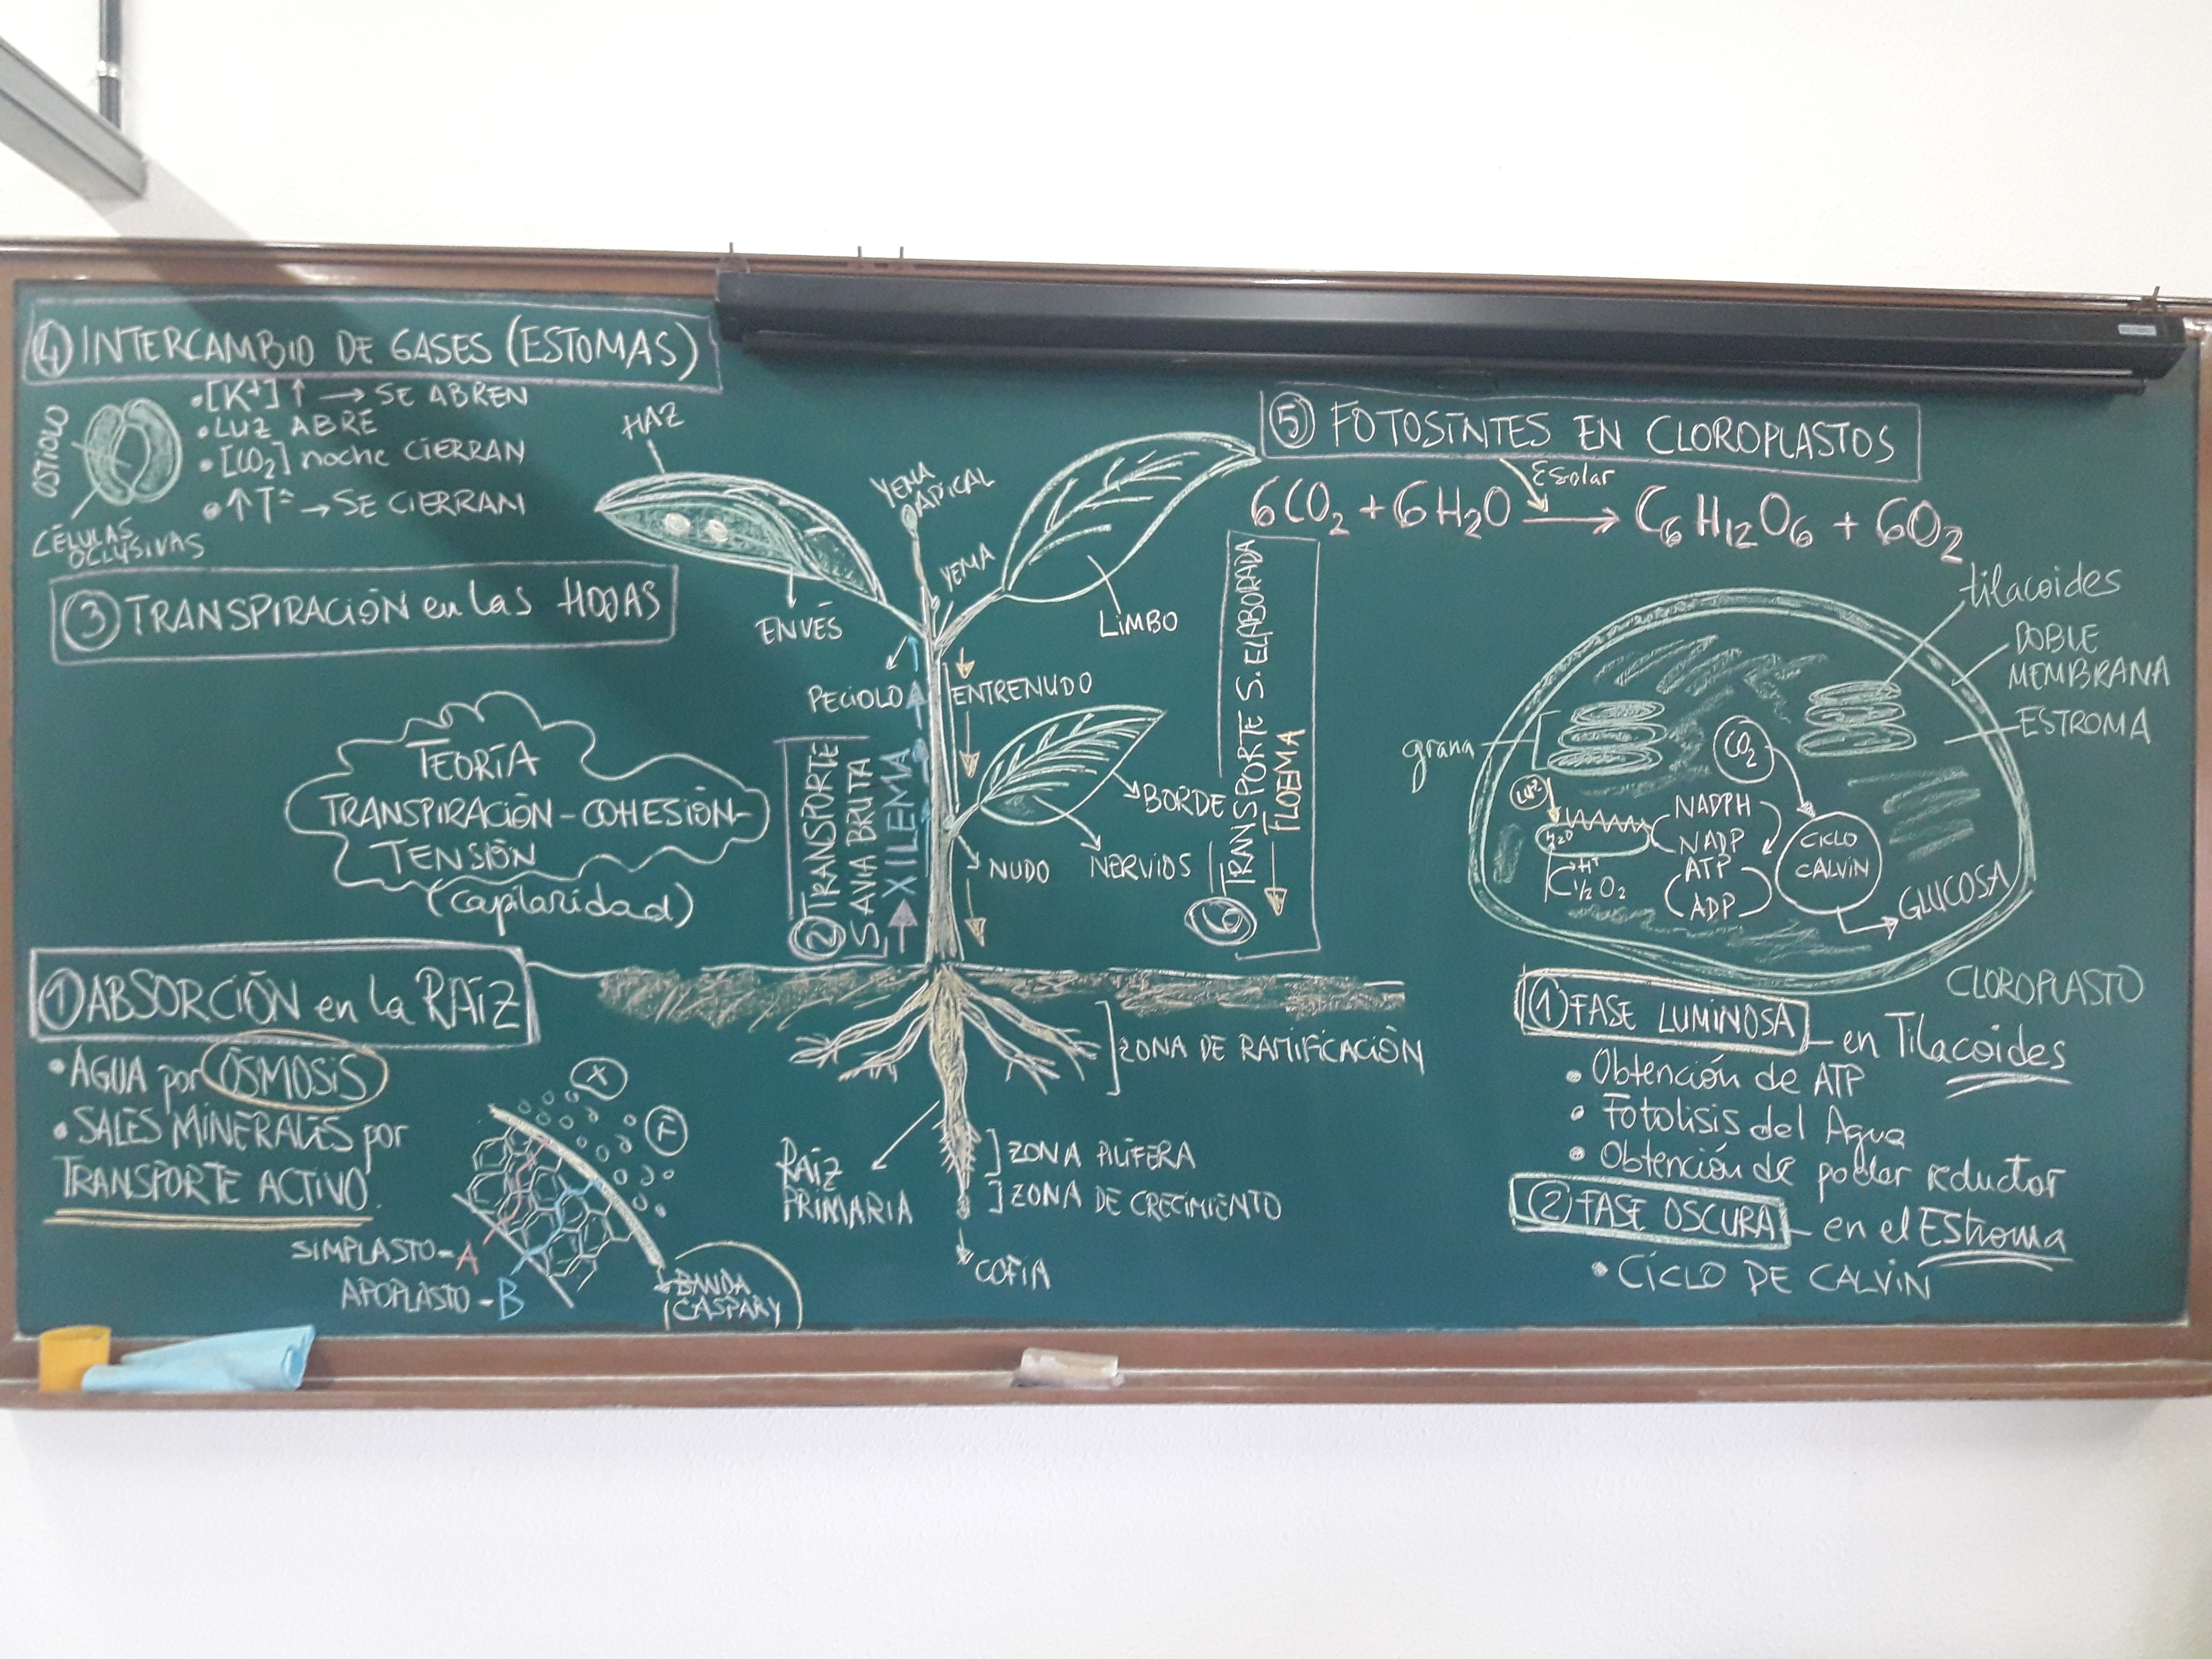 ④ INTERCAMBIO DE GASES (ESTOMAS)
• [K+] ↑ → SE ABREN
• LUZ ABRE
• [CO₂] noche CIERRAN
• ↑ Tª → SE CIERRAN
OSTIOLO
CÉLULAS
OCLUSIVAS
③ TRANSPIRACIÓN en las HOJAS
TEORÍA
TRANSPIRACIÓN - COHESIÓN -
TENSIÓN
(capilaridad)
① ABSORCIÓN en la RAÍZ
• AGUA por ÓSMOSIS
• SALES MINERALES por
TRANSPORTE ACTIVO.
SIMPLASTO - A
APOPLASTO - B
BANDA
CASPARY
HAZ
ENVÉS
YEMA
APICAL
YEMA
LIMBO
PECIOLO
ENTRENUDO
BORDE
NUDO
NERVIOS
② TRANSPORTE
SAVIA BRUTA
→ XILEMA
⑥ TRANSPORTE S. ELABORADA
← FLOEMA
ZONA DE RAMIFICACIÓN
RAÍZ
PRIMARIA
ZONA PILÍFERA
ZONA DE CRECIMIENTO
COFIA
⑤ FOTOSINTES EN CLOROPLASTOS
Esolar
6CO₂ + 6H₂O → C₆H₁₂O₆ + 6O₂
tilacoides
DOBLE
MEMBRANA
ESTROMA
grana
CO₂
LUZ
H₂O
H⁺
½ O₂
NADPH
NADP
ATP
ADP
CICLO
CALVIN
GLUCOSA
CLOROPLASTO
① FASE LUMINOSA - en Tilacoides
• Obtención de ATP
• Fotolisis del Agua
• Obtención de poder reductor
② FASE OSCURA - en el Estroma
• CICLO DE CALVIN